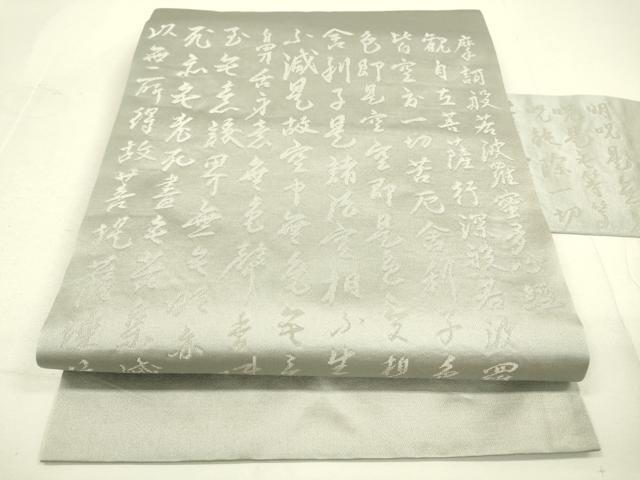 摩訶般若波羅蜜多心經
觀自在菩薩行深般若波羅
皆空度一切苦厄舍利子色
色即是空空即是色受想
舍利子是諸法空相不生
不減是故空中無色无
鼻舌身意無色聲香味
至无意識界無无明亦
死亦无老死盡无苦集滅
以無所得故菩提薩埵
明呪是无
呪是无等等
呪能除一切